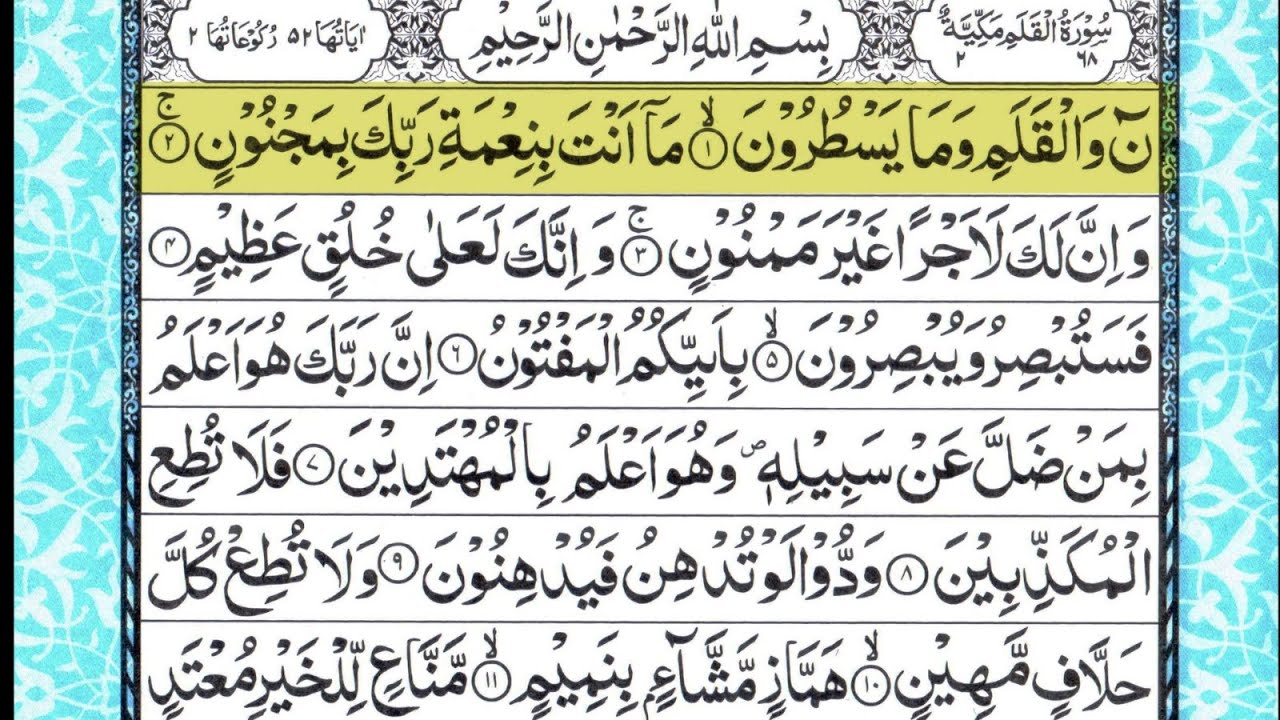 سُوْرَةُ الْقَلَمِ مَكِّيَّةٌ ٦٨ ٢
بِسْمِ اللّٰهِ الرَّحْمٰنِ الرَّحِيْمِ
اٰيَاتُهَا ٥٢ رُكُوْعَاتُهَا ٢
نٓ وَالْقَلَمِ وَمَا يَسْطُرُوْنَ ۙ‏﴿۱﴾ مَاۤ اَنْتَ بِنِعْمَةِ رَبِّكَ بِمَجْنُوْنٍ ۚ‏﴿۲﴾
وَاِنَّ لَكَ لَاَجْرًا غَيْرَ مَمْنُوْنٍ ۚ‏﴿۳﴾ وَاِنَّكَ لَعَلٰى خُلُقٍ عَظِيْمٍ ‏﴿۴﴾
فَسَتُبْصِرُ وَيُبْصِرُوْنَ ۙ‏﴿۵﴾ بِاَيِّكُمُ الْمَفْتُوْنُ ‏﴿۶﴾ اِنَّ رَبَّكَ هُوَ اَعْلَمُ
بِمَنْ ضَلَّ عَنْ سَبِيْلِهٖ ۖ وَهُوَ اَعْلَمُ بِالْمُهْتَدِيْنَ ‏﴿۷﴾ فَلَا تُطِعِ
الْمُكَذِّبِيْنَ ‏﴿۸﴾ وَدُّوْا لَوْ تُدْهِنُ فَيُدْهِنُوْنَ ‏﴿۹﴾ وَلَا تُطِعْ كُلَّ
حَلَّافٍ مَّهِيْنٍ ۙ‏﴿۱۰﴾ هَمَّازٍ مَّشَّآءٍۢ بِنَمِيْمٍ ۙ‏﴿۱۱﴾ مَّنَّاعٍ لِّلْخَيْرِ مُعْتَدٍ